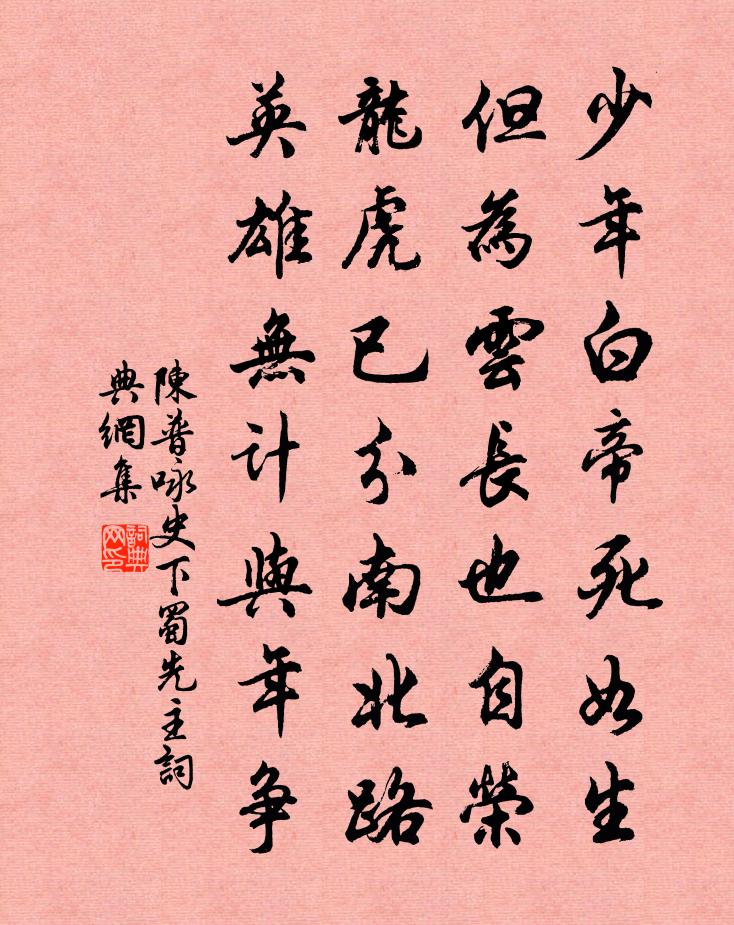 少年白帝死如生
但為雲長也自榮
龍虎已分南北路
英雄無計與年爭
陳普咏史下蜀先主詞
典網集
詞典
网印